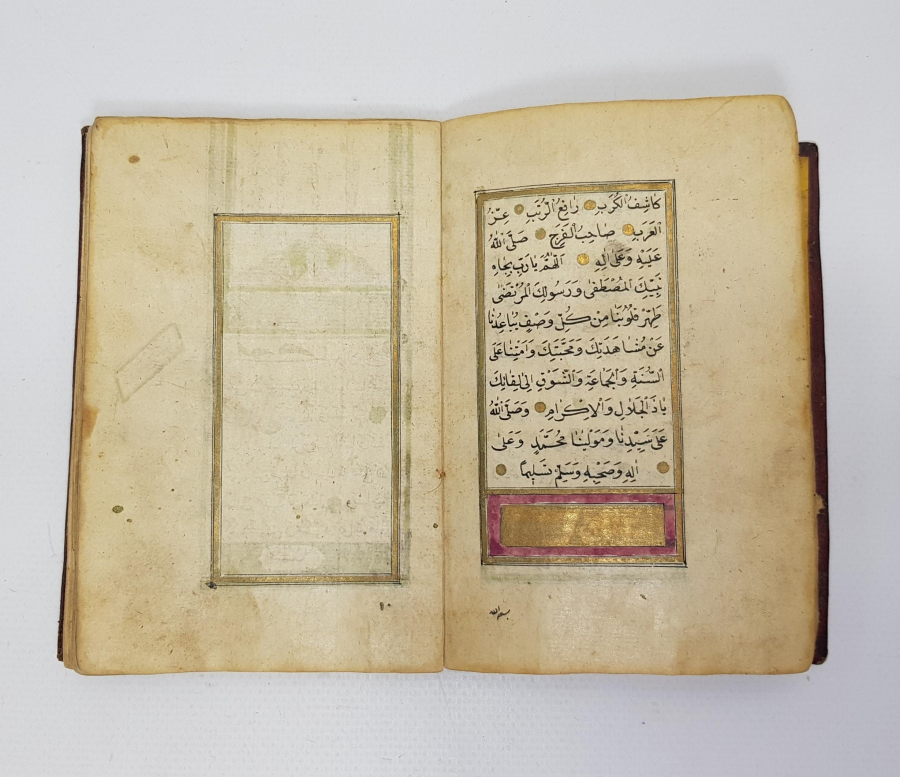 كَاشِفُ الْكُرَبِ رَافِعُ الرُّتَبِ عِزُّ
الْعَرَبِ صَاحِبُ الْفَرَجِ صَلَّى اللهُ
عَلَيْهِ وَعَلَى اٰلِهِ اَللّٰهُمَّ يَارَبِّ بِجَاهِ
نَبِيِّكَ الْمُصْطَفٰى وَرَسُولِكَ الْمُرْتَضٰى
طَهِّرْ قُلُوبَنَا مِنْ كُلِّ وَصْفٍ يُبَاعِدُنَا
عَنْ مُشَاهَدَتِكَ وَمَحَبَّتِكَ وَاَمِتْنَا عَلَى
السُّنَّةِ وَالْجَمَاعَةِ وَالشَّوْقِ اِلٰى لِقَائِكَ
يَاذَا الْجَلَالِ وَالْاِكْرَامِ وَصَلَّى اللهُ
عَلٰى سَيِّدِنَا وَمَوْلٰينَا مُحَمَّدٍ وَعَلٰى
اٰلِهِ وَصَحْبِهِ وَسَلِّمْ تَسْلِيمًا